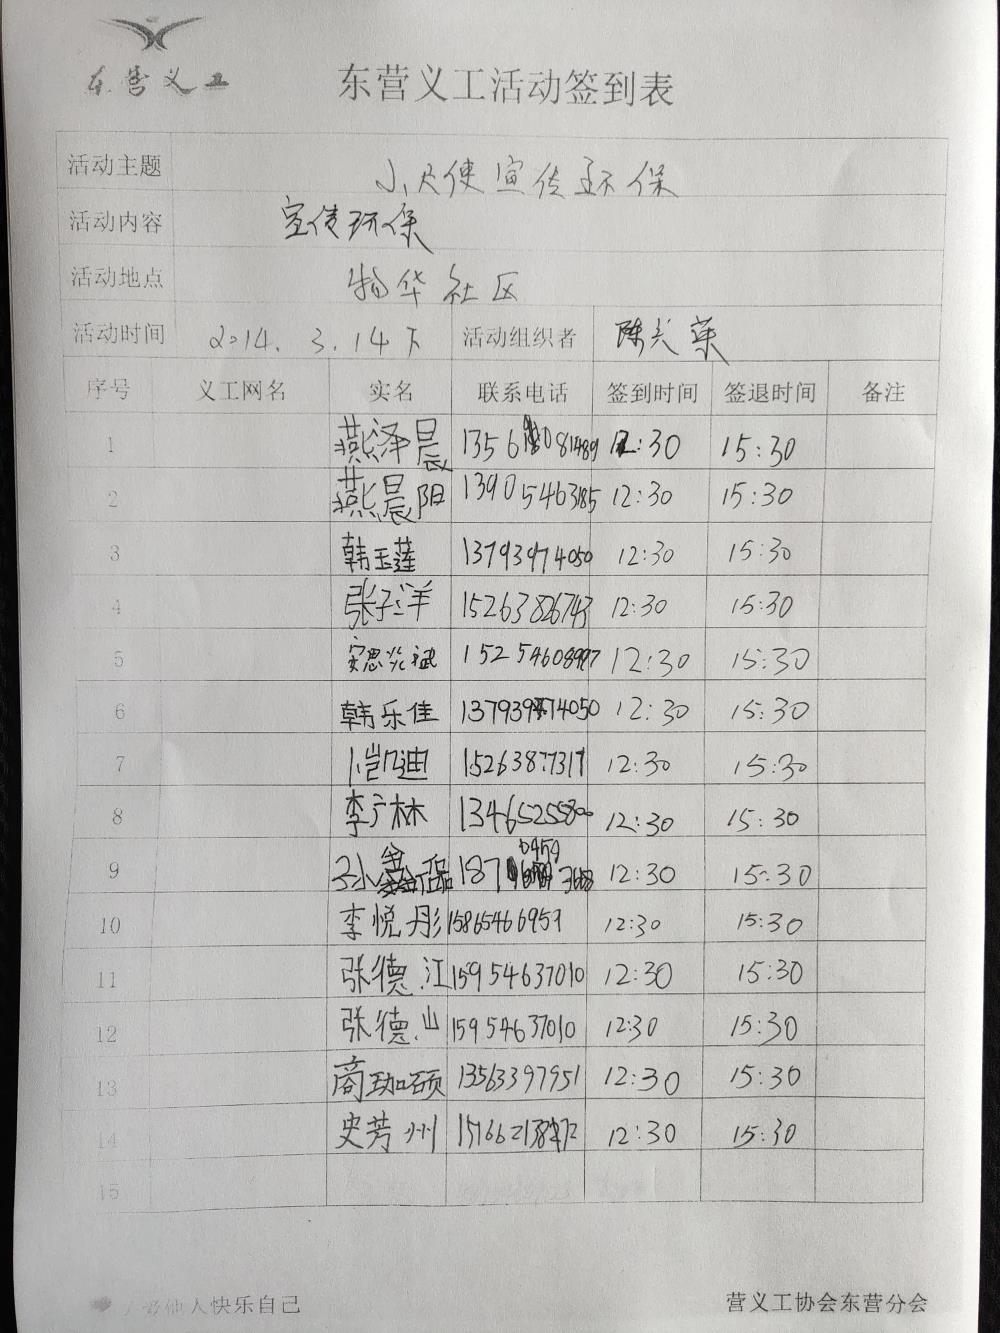 东营义工
东营义工活动签到表
活动主题 小天使宣传环保
活动内容 宣传环保
活动地点 物华社区
活动时间 2014.3.14下 活动组织者 陈 荣
序号 义工网名 实名 联系电话 签到时间 签退时间 备注
1 燕泽晨 12:30 15:30
2 燕晨阳 13905463185 12:30 15:30
3 韩玉莲 13793974050 12:30 15:30
4 张子洋 15263826743 12:30 15:30
5 12:30 15:30
6 韩乐佳 12:30 15:30
7 凯迪 15263877317 12:30 15:30
8 李广林 13465255800 12:30 15:30
9 孙鑫保 12:30 15:30
10 李悦彤 15865466959 12:30 15:30
11 张德江 15954637010 12:30 15:30
12 张德山 15954637010 12:30 15:30
13 商珈硕 13563397951 12:30 15:30
14 史芳州 12:30 15:30
15
他人快乐自己
营义工协会东营分会